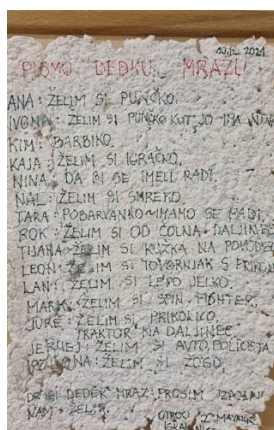 PISMO DEDKU MRAZU
ANA: ŽELIM SI PUNČKO.
IVONA: ŽELIM SI PUNČKO KOT JO IMA NINA
KIM: BARBIKO.
KAJA: ŽELIM SI IGRAČKO.
NINA: DA BI SE IMELI RADI.
NAL: ŽELIM SI SMREKO.
TARA: POBARVANKO IMAMO SE RADI.
ROK: ŽELIM SI OD ČOLNA DALJINEC
TIJANA: ŽELIM SI KUŽKA NA POVODCU
LEON: ŽELIM SI TOVORNJAK S PRIKOLICO
LAN: ŽELIM SI LEPO JELKO.
MARK: ŽELIM SI SPIN FIGHTER.
JURE: ŽELIM SI PRIKOLICO,
TRAKTOR NA DALJINEC.
JERNEJ: ŽELIM SI AVTO, POLICISTA
ŽELIM SI ŽOGO.
DRAGI DEDEK MRAZ, PROSIM
NAM ŽELJE.
OTROCI IZ